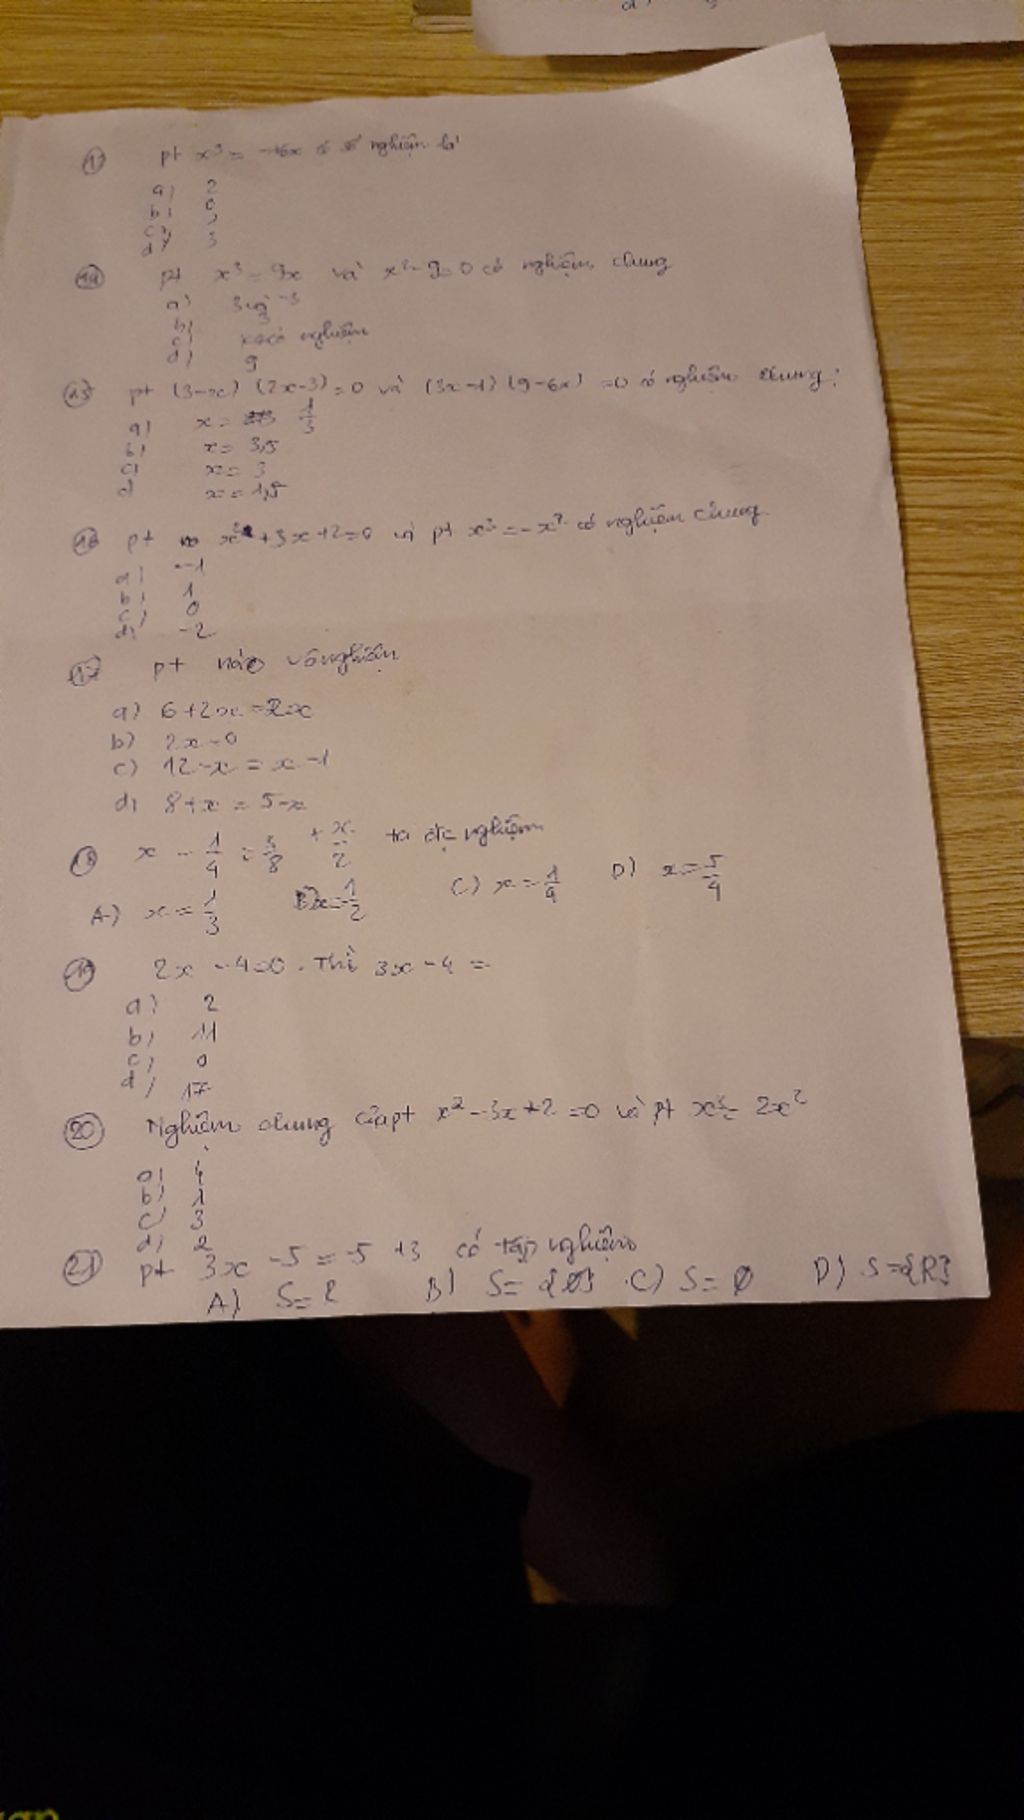 pt x³ = -16x có số nghiệm là
a) 2
b) 0
c)
d) 3
14 pt x³ = 9x và x² - 9 = 0 có nghiệm chung
a) 3 và -3
b) 3
c) nghiệm
d) 9
15 pt (3-x) (2x-3) = 0 và (3x-1) (9-6x) = 0 có nghiệm chung:
a) x = 1/3
b) x = 3,5
c) x = 3
d x = 1,5
16 pt x² + 3x + 2 = 0 và pt x³ = -x² có nghiệm chung
a) -1
b) 1
c) 0
d) -2
17 pt nào vô nghiệm
a) 6 + 2x = 2x
b) 2x = 0
c) 12 - x = x - 1
d) 8 + x = 5 - x
18 x - 1/4 = 5/8 + x/2 ta đc nghiệm
A) x = 1/3 B) x = 1/2 C) x = 1/4 D) x = 5/4
19 2x - 4 = 0. Thì 3x - 4 =
a) 2
b) 11
c) 0
d) 17
20 Nghiệm chung của pt x² - 3x + 2 = 0 và pt x³ = 2x²
a) 4
b) 1
c) 3
d) 2
21 pt 3x - 5 = -5 + 3 có tập nghiệm
A) S = 2 B) S = {0} C) S = ∅ D) S = {R}